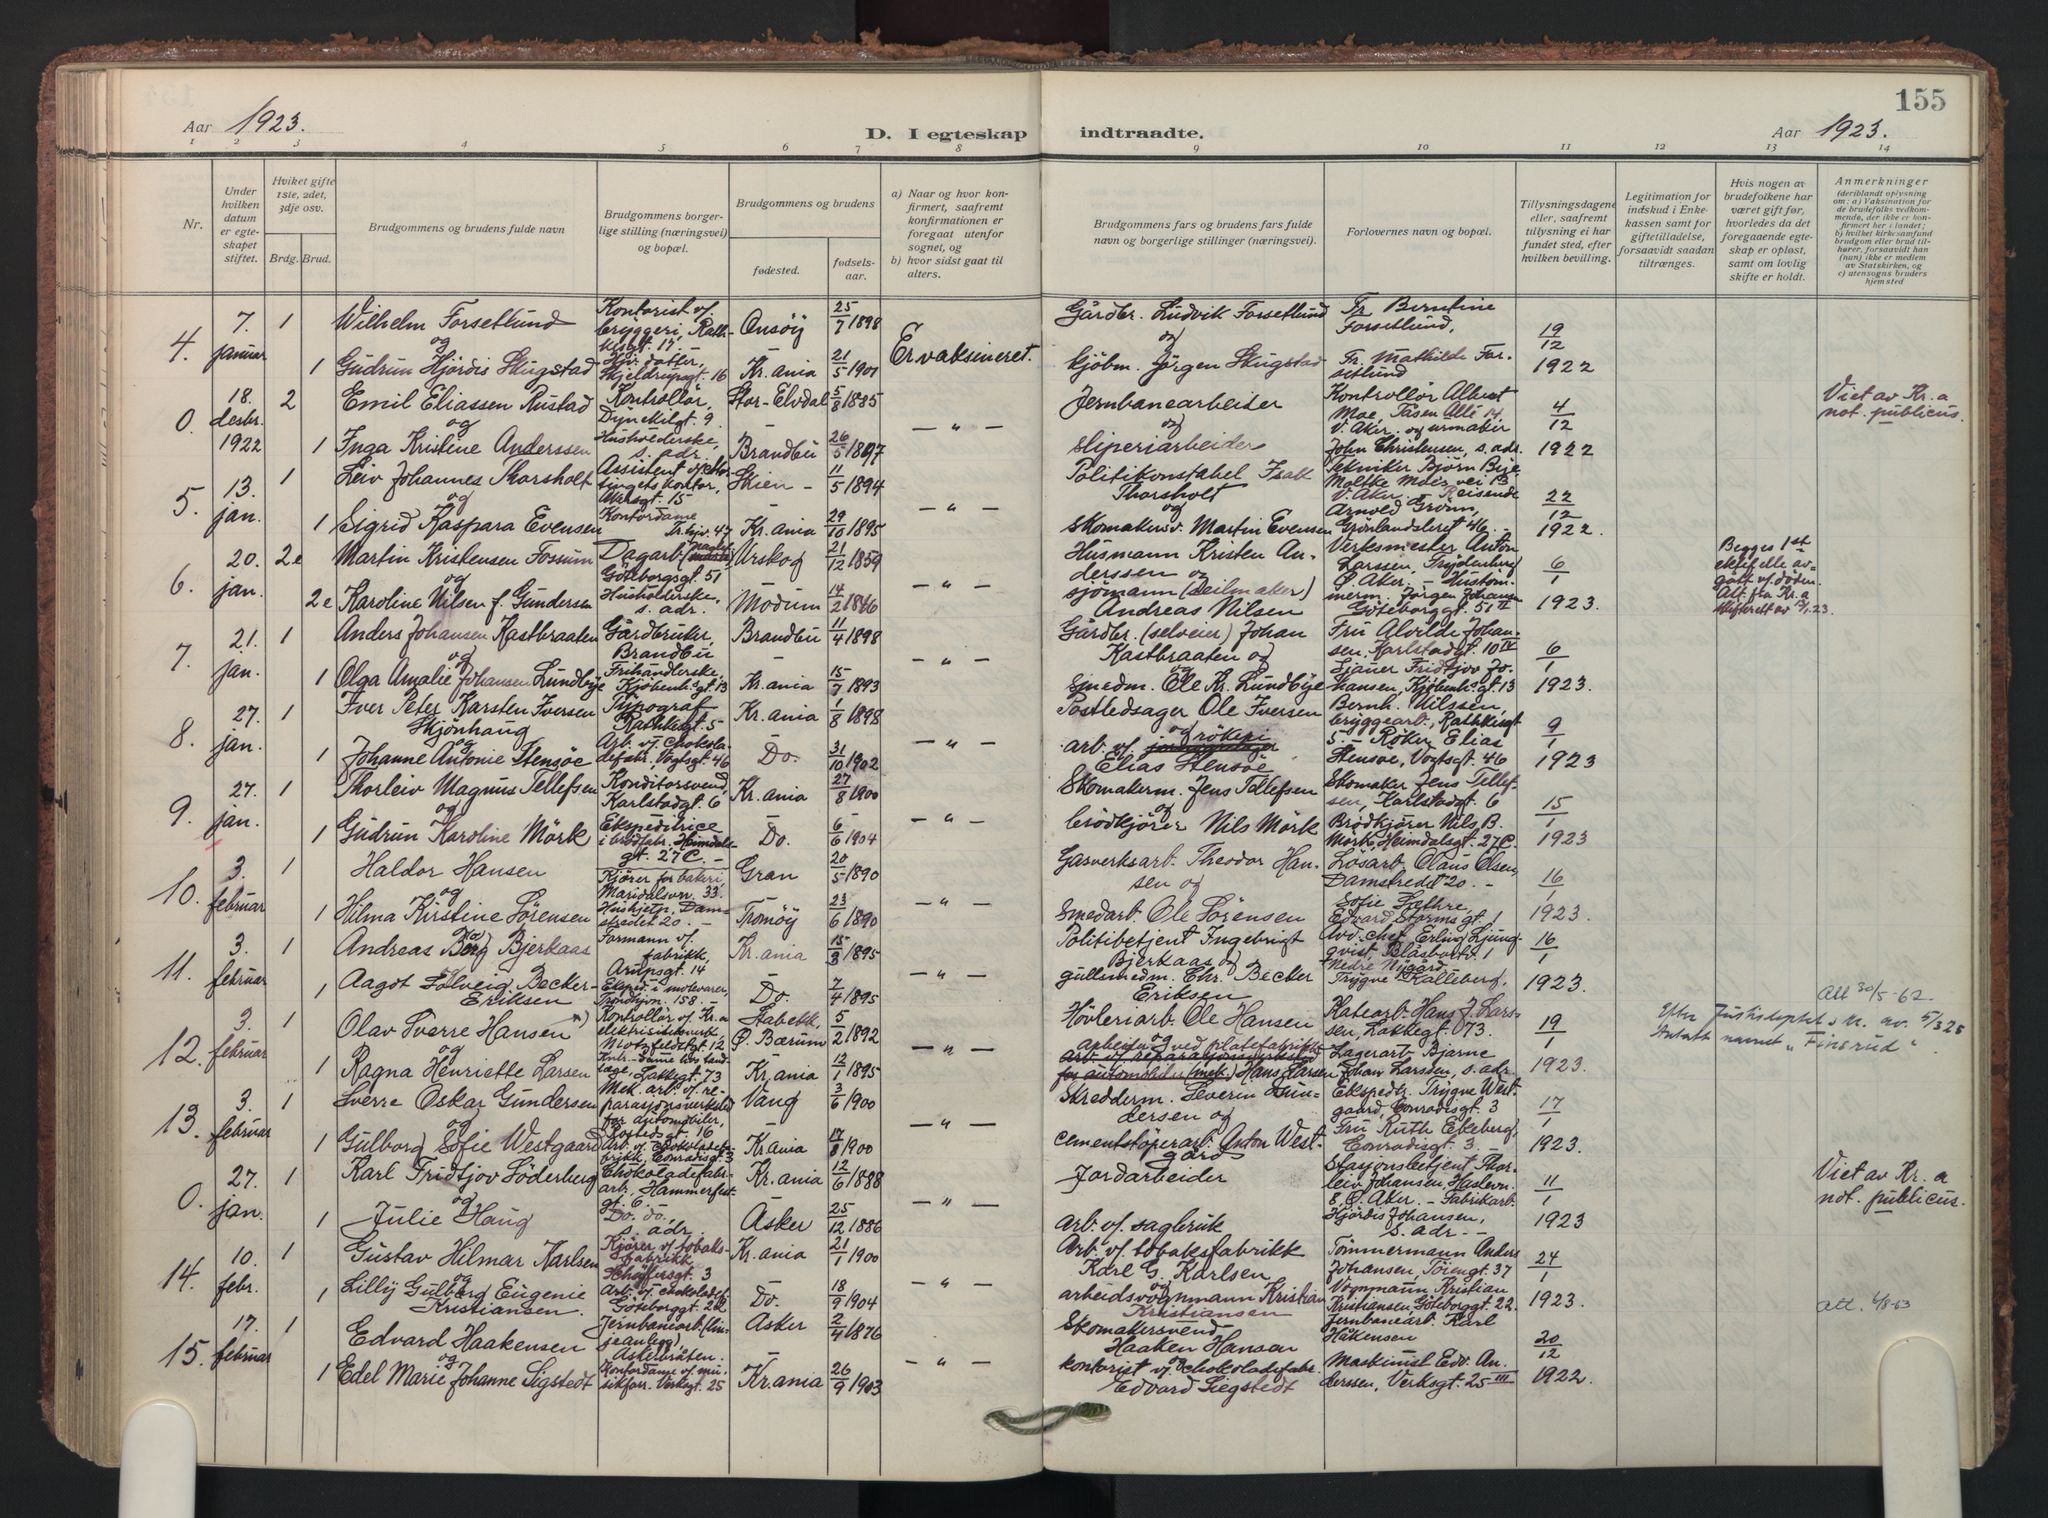 155
Aar 1923.
D. I egteskap indtraadte.
Aar 1923.
1 2 3 4 5 6 7 8 9 10 11 12 13 14
Nr.
Under hvilken datum er egteskapet stiftet.
Hviket gifte 1ste, 2det, 3dje osv.
Brdg. Brud.
Brudgommens og brudens fulde navn
Brudgommens borgerlige stilling (næringsvei) og bopæl.
Brudgommens og brudens
fødested.
fødselsaar.
a) Naar og hvor konfirmert, saafremt konfirmationen er foregaat utenfor sognet, og
b) hvor sidst gaat til alters.
Brudgommens fars og brudens fars fulde navn og borgerlige stillinger (næringsvei).
Forlovernes navn og bopæl.
Tillysningsdagene eller, saafremt tillysning ei har fundet sted, efter hvilken bevilling.
Legitimation for indskud i Enkekassen samt for giftetilladelse, forsaavidt saadan tiltrænges.
Hvis nogen av brudefolkene har været gift før, hvorledes da det foregaaende egteskap er opløst, samt om lovlig skifte er holdt.
Anmerkninger
(deriblandt oplysning om: a) Vaksination for de brudefolks vedkommende, der ikke er konfirmert her i landet; b) hvilket kirkesamfund brudgom eller brud tilhører, forsaavidt han (hun) ikke er medlem av Statskirken, og c) utensogns bruders hjemsted
4. 7. januar 1 Wilhelm Forsetlund Kontorist v/ bryggeri, Rathkesgt. 17, Onsöy 25/7 1898 Er vaksineret. Gårdbr. Ludvik Forsetlund Fr. Berntine Forsetlund, 19/12
og
1 Gudrun Hjördis Skugstad Hjv. datter, Skjeldrupsgt. 16 Kr.ania 21/5 1901 kjöbm. Jörgen Skugstad Fr. Mathilde Forsetlund 1922
0. 18. desbr. 1922 2 Emil Eliassen Rustad Kontrollör, Dynekilgt. 9. Stor-Elvdal 5/8 1885 — " — Jernbanearbeider Kontrollör Albert Moe, Tåsen Allé 14, V. Aker. og urmaker 4/12 Viet av Kr.a not. publicus.
og
1 Inga Kristine Anderssen Husholderske, s. adr. Brandbu 26/5 1897 sliperiarbeider John Christensen, s. adr. 1922
5. 13. jan. 1 Leiv Johannes Thorsholt Assistent v/ Stortingets kontor, Akersgt. 15 Skien 11/5 1894 — " — Politikonstabel Isak Thorsholt Tekniker Björn Bye Moltke Moes vei 13 V. Aker. Reisende 22/12
og
1 Sigrid Kaspara Evensen Kontordame Tr.hjv. 47 Kr.ania 29/10 1895 skomakersv. Martin Evensen Arnold Grönn, Grönlandsleret 46. 1922.
6. 20. jan. 2e Martin Kristensen Fossum Dagarb. Göteborgsgt. 51 Urskog 21/12 1859 — " — Husmann Kristen Anderssen Verksmester Anton Larssen, Ö. Aker. 6/1 Begges 1ste ektef.elle avgått v/ döden. Att. fra Kr.a skifteret av
og
2e Karoline Nilsen f. Gundersen Husholderske, s. adr. Modum 14/2 1866 sjömann (seilmaker) Andreas Nilsen Jörgen Johansen Göteborggt. 51 II 1923.
7. 21. jan. 1 Anders Johansen Kastbraaten Gårdbruker, Brandbu Brandbu 11/4 1898 — " — Gårdbr. (selveier) Johan Kastbraaten og Fru Alvilde Johansen, Karlstadgt. 10 IV 6/1
og
1 Olga Amalie Johansen Lundbye Frihandlerske, Kjöbenh.gt. 13 Kr.ania 15/7 1893 smedm. Ole Kr. Lundbye Sjauer Fridtjov Johansen, Kjöbenh.gt. 13 1923.
8. 27. jan. 1 Iver Peter Karsten Iversen Skjönhaug Typograf Rathkegt. 5 Kr.ania 1/8 1898 — " — Postledsager Ole Iversen Bernh. Nilssen, bryggearb., Rathkesgt 5. 9/1
og
1 Johanne Antonie Stensöe Arb. v/ chokoladefabr., Vogtsgt. 46 Do. 31/10 1902 arb. v/ rökeri Elias Stensöe Röker Elias Stensöe, Vogtsgt. 46 1923
9. 27. jan. 1 Thorleiv Magnus Tellefsen Konditorsvend, Karlstadgt. 6 Kr.ania 27/8 1900 — " — Skomakerm. Jens Tellefsen Skomaker Jens Tellefsen, Karlstadgt. 6 15/1
og
1 Gudrun Karoline Mörk Ekspeditrice i brödfabr. Heimdalsgt. 27C. Do. 6/6 1904 brödkjörer Nils Mörk Brödkjörer Nils B. Mörk, Heimdalsgt. 27C. 1923
10. 3. februar 1 Haldor Hansen Kjörer for bakeri, Maridalsvn. 33. Gran 20/5 1890 — " — Gasverksarb. Theodor Hansen og Lösarb. Olaus Olsen, Damstredet 20. 16/1
og
1 Hilma Kirstine Sörensen Hushjelp, Damstredet 20. Tromöy 23/6 1890 Smedarb. Ole Sörensen Sofie Edvard Stormsgt. 1 1923.
11. 3. februar 1 Andreas Berg Bjerkaas Formann v/ fabrikk, Arupsgt. 14 Kr.ania 15/3 1895 — " — Politibetjent Ingebrigt Bjerkaas og Avd. chef Erling Ljungqvist, 16/1
og
1 Aagot Solveig Becker-Eriksen Eksped. i motevarer, Trondhjvn. 158. Do. 7/4 1895 gullsmedm. Chr. Becker Eriksen Nedre Nygård. Trygve Kalleberg, 1923.
12. 3. februar 1 Olav Sverre Hansen *) Kontrollör v/ Kr.a elektrisitetsverk, Motzfeldtsgt. 12 Stabekk, Ö. Bærum 5/2 1892 — " — Hövleriarb. Ole Hansen Hans J. Larssen, Lakkegt. 73. 19/1 Att 30/5-62. Efter Justisdeptets av 5/3 25 navnet "Finsrud".
og
1 Ragna Henriette Larsen Lakkegt. 73 Kr.ania 12/1 1895 Arbeider ved platefabrikk Hans Larsen Lagerarb. Bjarne Johan Larssen, s. adr. 1923.
13. 3. februar 1 Sverre Oskar Gundersen Mek. arb. v/ reparasjonsverksted for automobiler, 16 Vang 3/6 1900 — " — Skredderm. Severin Gundersen og Ekspedtr. Trygve Westgaard, Conradisgt. 3 17/1
og
1 Gulborg Sofie Westgaard Arb. v/ chokoladefabrikk, Conradisgt. 3 Kr.ania 17/8 1900 cementstöperarb. Anton Westgård Fru Ruth Ekeberg, Conradisgt. 3. 1923.
0. 27. jan. 1 Karl Fridtjov Söderberg Chokoladefabr. arb., Hammerfestgt. 6. Kr.ania 12/6 1888 — " — Jordarbeider Stasjonsbetjent Thorleiv Johansen, Haslevn. 8, Ö. Aker. - Fabrikarb. 11/1 Viet av Kr.a not. publicus.
og
1 Julie Haug Do. do. s. adr. Asker 25/12 1886 arb. v/ sagbruk Hjördis Johansen, s. adr. 1923
14. 10. febr. 1 Gustav Hilmar Karlsen Kjörer v/ tobaksfabrikk Schöllersgt. 3 Kr.ania 21/1 1900 — " — Arb. v/ tobaksfabrikk Karl G. Karlsen Tömmermann Anders Johansen, Töiengt. 37 24/1
og
1 Lilly Gulborg Eugenie Kristiansen. Arb. v/ chokoladef. Göteborggt. 22 Do. 18/9 1904 arbeidsvognmann Kristian Kristiansen Vognmann Kristian Kristiansen, Göteborggt. 22. 1923. Att. 6/8-63
15. 17. februar 1 Edvard Haakensen Jernbanearb. (linjeanlegg), Askerbråten. Asker 2/4 1876 — " — Skomakersvend Haaken Hansen Jernbanearb. Karl Håkensen 20/12
og
1 Edel Marie Johanne Sigstedt Kontordame v/ musikforr. Verksgt. 25 Kr.ania 26/9 1903 kontorist v/ chokoladefabr. Edvard Siegstedt Maskinist Edv. Anderssen, Verksgt. 25 III 1922.